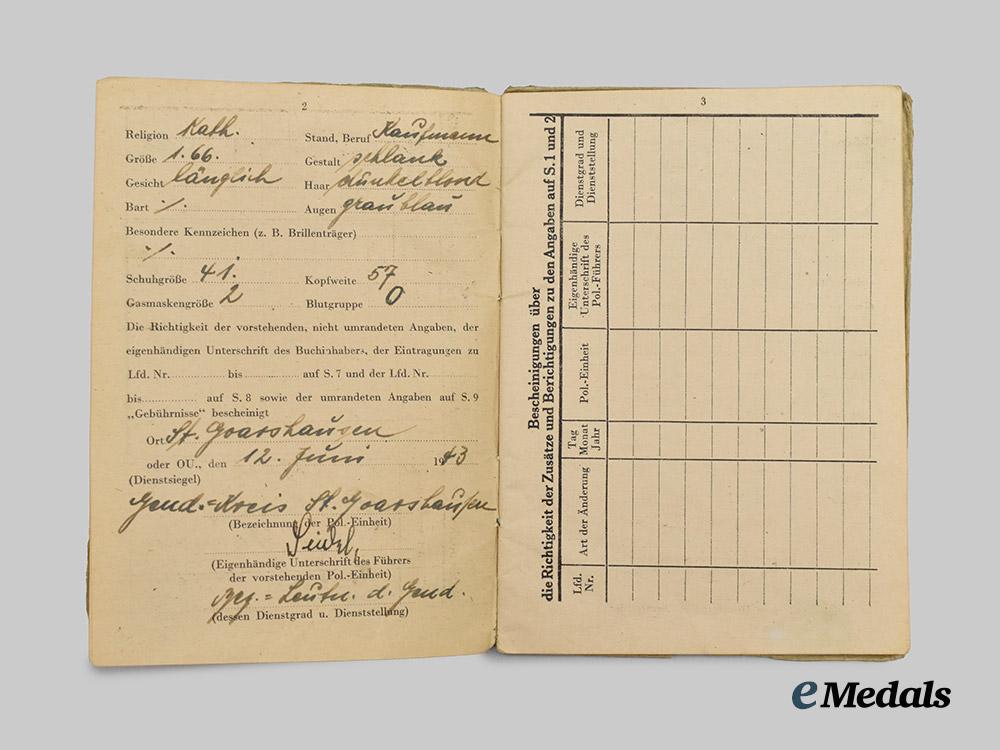 2
Religion Kath. Stand, Beruf Kaufmann
Größe 1.66. Gestalt schlank
Gesicht länglich Haar dunkelblond
Bart ./. Augen graublau
Besondere Kennzeichen (z. B. Brillenträger)
./.
Schuhgröße 41. Kopfweite 57
Gasmaskengröße 2 Blutgruppe 0
Die Richtigkeit der vorstehenden, nicht umrandeten Angaben, der
eigenhändigen Unterschrift des Buchinhabers, der Eintragungen zu
Lfd. Nr. bis auf S. 7 und der Lfd. Nr.
bis auf S. 8 sowie der umrandeten Angaben auf S. 9
„Gebührnisse" bescheinigt
Ort St. Goarshausen
oder OU., den 12. Juni 1943
(Dienstsiegel)
Gend.=Kreis St. Goarshausen
(Bezeichnung der Pol.-Einheit)
Seidel,
(Eigenhändige Unterschrift des Führers
der vorstehenden Pol.-Einheit)
Leutn. d. Gend.
(dessen Dienstgrad u. Dienststellung)
3
Bescheinigungen über
die Richtigkeit der Zusätze und Berichtigungen zu den Angaben auf S. 1 und 2
Lfd.
Nr.
Art der Änderung
Tag
Monat
Jahr
Pol.-Einheit
Eigenhändige
Unterschrift des
Pol.-Führers
Dienstgrad und
Dienststellung
eMedals